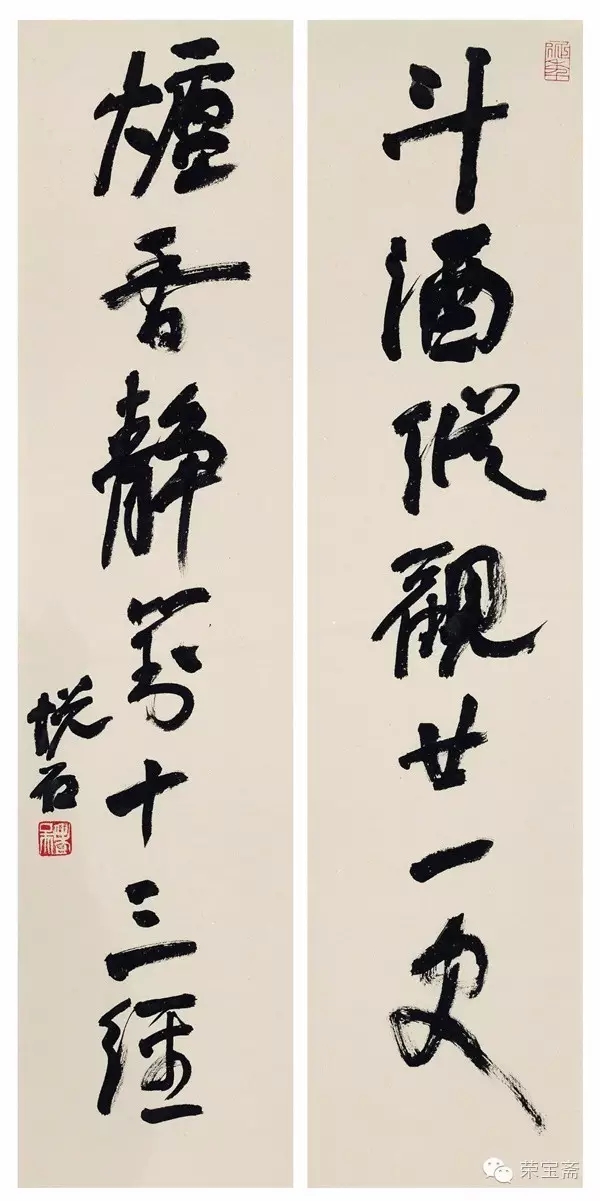 斗酒縱觀廿一史
爐香靜對十三經
悦石
荣宝斋